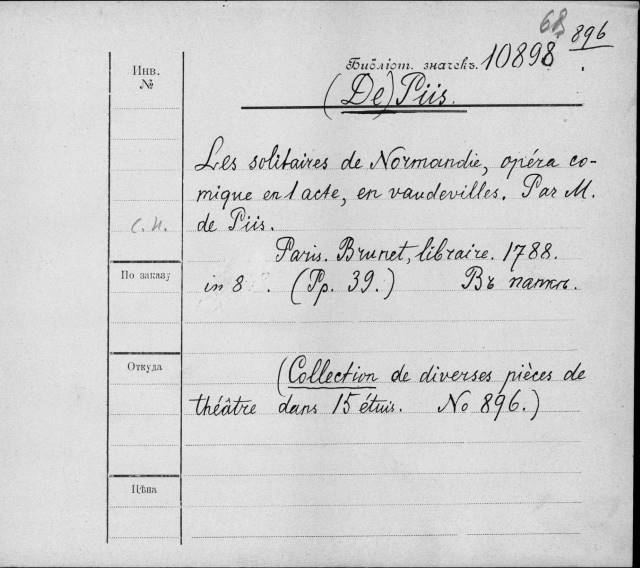 68 896
Инв. №
Библіот. значекъ. 10898
(De) Piis.
Les solitaires de Normandie, opéra co-
mique en 1 acte, en vaudevilles. Par M.
С. Н. de Piis.
Paris. Brunet, libraire. 1788.
По заказу
in 8 . (Pp. 39.) Въ папкѣ.
Откуда
(Collection de diverses pièces de
théâtre dans 15 étuis. No 896.)
Цѣна